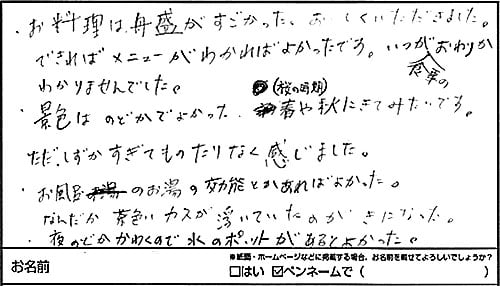 ・お料理は舟盛がすごかった、おいしくいただきました。
できればメニューがわかればよかったです。いつがおわりか
食事の
わかりませんでした。
(桜の時期)
・景色はのどかでよかった。春や秋にきてみたいです。
ただ、しずかすぎてものたりなく感じました。
・お風呂のお湯の効能とかあればよかった。
なんだか茶色いカスが浮いていたのがきになった。
・夜のどがかわくので水のポットがあるとよかった。
お名前
※紙面・ホームページなどに掲載する場合、お名前を載せてよろしいでしょうか?
□はい ☑ペンネームで( )